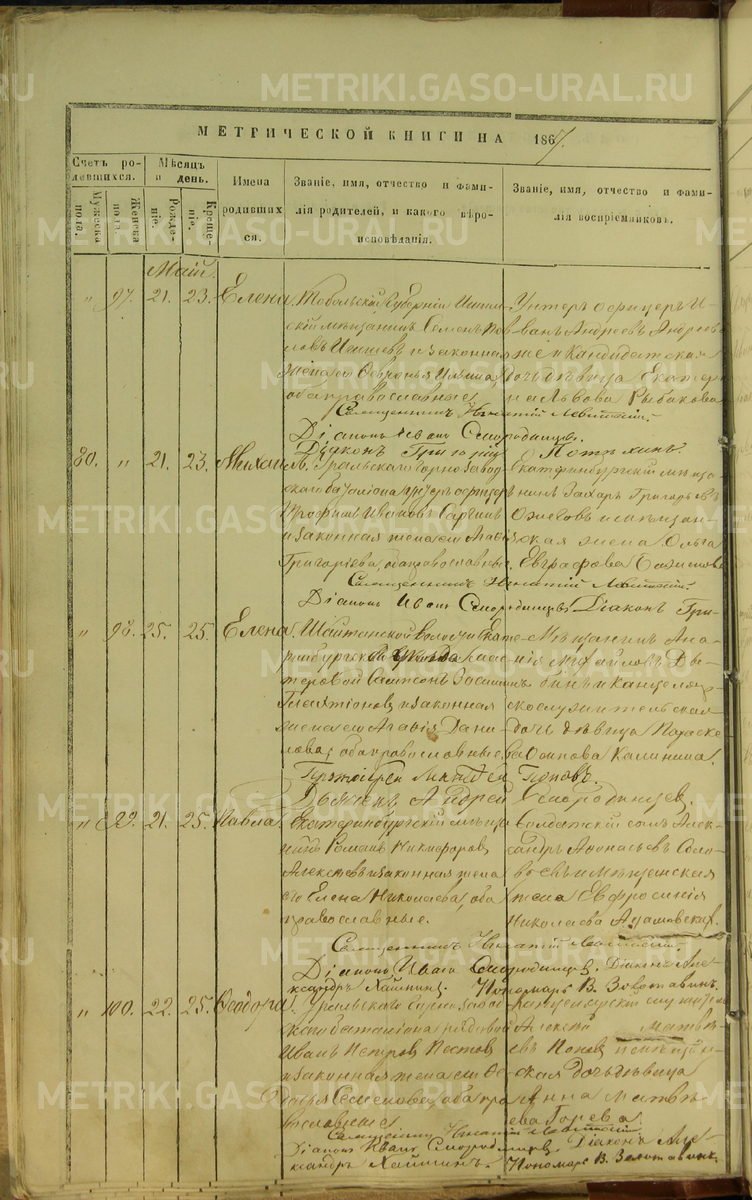 METRIKI.GASO-URAL.RU
МЕТРИЧЕСКОЙ КНИГИ НА 1867.
Счетъ родившихся.
Мужеска пола.
Женска пола.
Мѣсяцъ и день.
Рожденіе.
Крещеніе.
Имена родившихся.
Званіе, имя, отчество и фамилія родителей, и какого вѣроисповѣданія.
Званіе, имя, отчество и фамилія воспріемниковъ.
Май.
" 97. 21. 23. Елена.
Тобольской Губерніи Ишим
скій мѣщанинъ Семенъ Пав
ловъ и законная
жена его Февронья
оба православные
Унтеръ офицеръ И
ванъ Андреевъ
и Кандидатская
дочь дѣвица Екатери
на Львова Рыбакова
Священникъ Игнатій Левитскій.
Діаконъ Иванъ Смородинцевъ.
Діаконъ Григорій Потѣхинъ.
80. " 21. 23. Михаилъ.
Уральскаго Горнозавод
скаго баталіона унтеръ офицеръ
Трофимъ Ивановъ
и законная жена его Агафія
Григоріева, оба православные.
Екатеринбургскій мѣща
нинъ Захаръ Григорьевъ
Ожеговъ и мѣщан
ская жена Ольга
Евграфова
Священникъ Игнатій Левитскій.
Діаконъ Иванъ Смородинцевъ Діаконъ Гри
" 98. 25. 25. Елена.
Шайтанской волости Екате
ринбургскаго уѣзда
Сампсонъ
и законная
жена его Агафія Дани
лова; оба православные
Мѣщанинъ Ана
нія Михайловъ
и Канцеляр
скослужительская
дочь дѣвица Параске
ва Осипова Калинина.
Протоіерей Матѳей Поповъ.
Дьяконъ Андрей Смородинцев
" 99. 21. 25. Павла.
Екатеринбургскій мѣща
нинъ Романъ Никифоровъ
Алексѣевъ и законная жена
его Елена Николаева, оба
православные.
Солдатскій сынъ Алек
сандръ Афонасьевъ Соло
вьевъ и мѣщанская
жена Евфросинія
Николаева Адамовских
Священникъ Игнатій Левитскій.
Діаконъ Иванъ Смородинцев. Діаконъ Але
ксандръ Хаймин. Пономарь В. Золотавин.
" 100. 22. 25. Ѳеодора.
Уральскаго Горнозавод
скаго баталіона рядовой
Иванъ Петровъ Пестов
и законная жена его
Семенова, оба пра
вославные
Канцелярскій служитель
Алексѣй Матвѣ
евъ Попов и мѣщан
ская дочь дѣвица
Анна Матвѣ
ева Горева
Священникъ Игнатій Левитскій
Діаконъ Иванъ Смородинцев. Діаконъ Але
ксандръ Хаймин. Пономарь В. Золотавин.